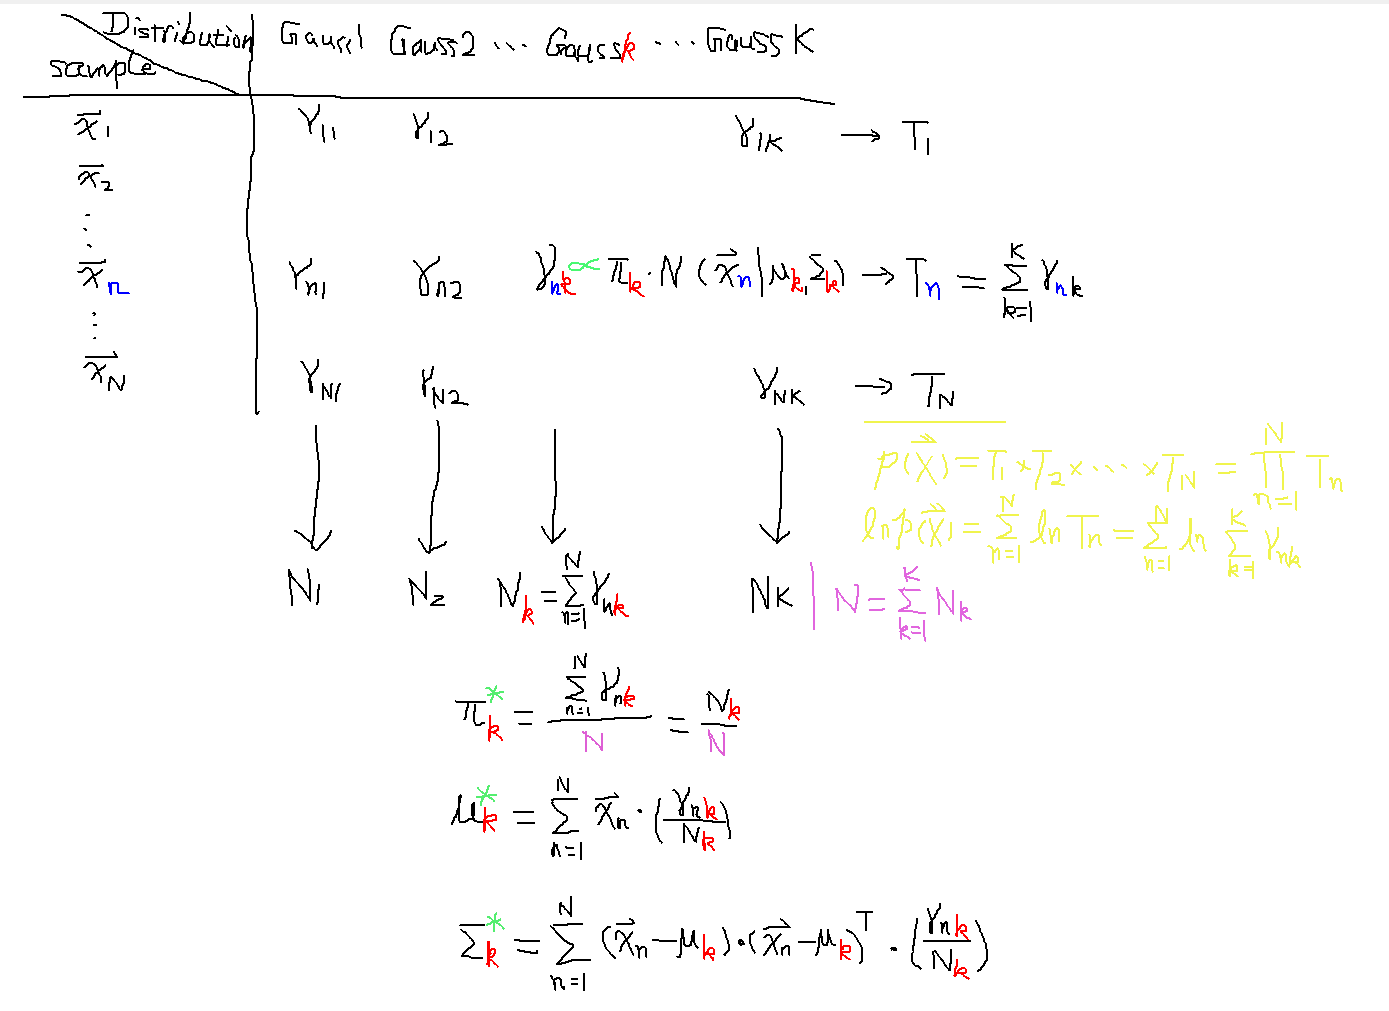 Distribution Gauss1 Gauss2 ... Gaussk ... GaussK
sample
x⃗₁ γ₁₁ γ₁₂ γ₁K → T₁
x⃗₂
⋮
x⃗ₙ γₙ₁ γₙ₂ γₙₖ ∝ πₖ · N(x⃗ₙ|μₖ,Σₖ) → Tₙ = Σ_{k=1}^{K} γₙₖ
⋮
x⃗_N γ_{N1} γ_{N2} γ_{NK} → T_N
p(X⃗) = T₁ × T₂ × ... × T_N = ∏_{n=1}^{N} Tₙ
ln p(X⃗) = Σ_{n=1}^{N} ln Tₙ = Σ_{n=1}^{N} ln Σ_{k=1}^{K} γₙₖ
N₁ N₂ Nₖ = Σ_{n=1}^{N} γₙₖ N_K | N = Σ_{k=1}^{K} Nₖ
πₖ* = (Σ_{n=1}^{N} γₙₖ)/N = Nₖ/N
μₖ* = Σ_{n=1}^{N} x⃗ₙ · (γₙₖ/Nₖ)
Σₖ* = Σ_{n=1}^{N} (x⃗ₙ − μₖ) · (x⃗ₙ − μₖ)ᵀ · (γₙₖ/Nₖ)